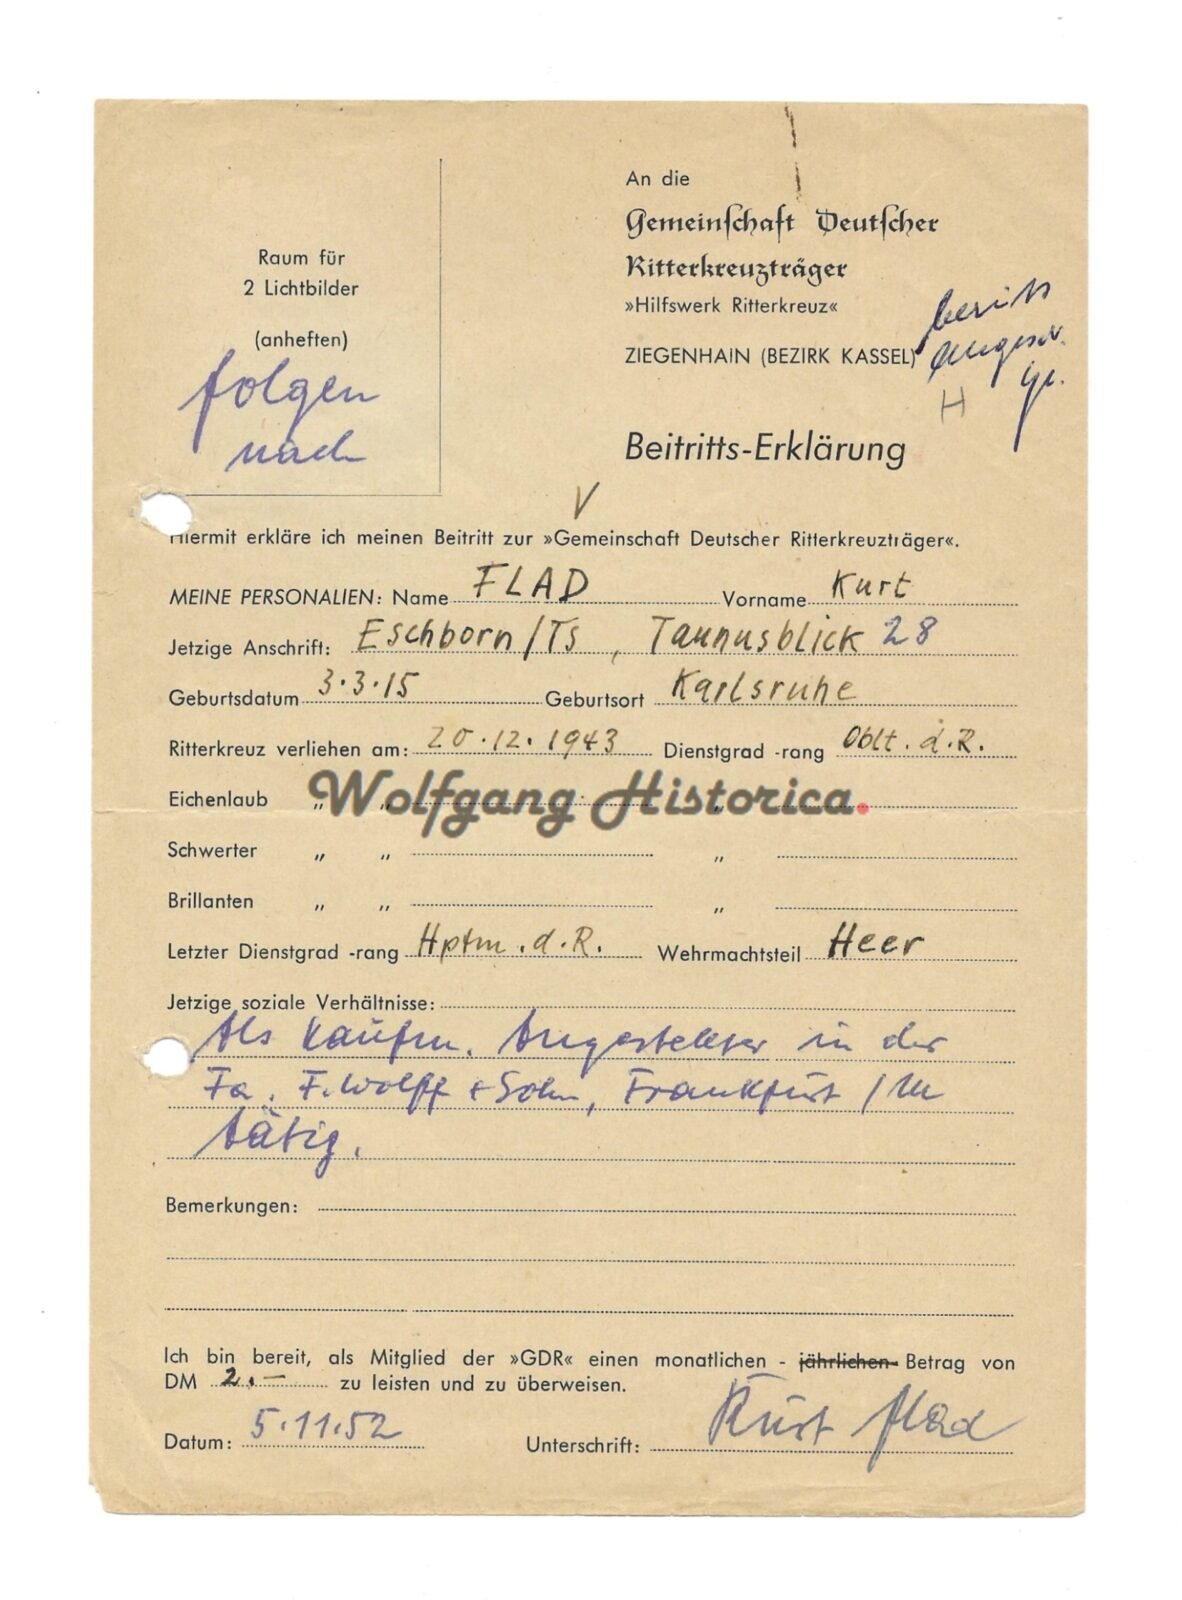 An die
Gemeinschaft Deutscher
Ritterkreuzträger
»Hilfswerk Ritterkreuz«
ZIEGENHAIN (BEZIRK KASSEL)
bereits
H
Raum für
2 Lichtbilder
(anheften)
folgen
nach
Beitritts-Erklärung
V
Hiermit erkläre ich meinen Beitritt zur »Gemeinschaft Deutscher Ritterkreuzträger«.
MEINE PERSONALIEN: Name FLAD Vorname Kurt
Jetzige Anschrift: Eschborn/Ts, Taunusblick 28
Geburtsdatum 3.3.15 Geburtsort Karlsruhe
Ritterkreuz verliehen am: 20.12.1943 Dienstgrad -rang Oblt. d.R.
Eichenlaub „ „ „
Wolfgang Historica.
Schwerter „ „ „
Brillanten „ „ „
Letzter Dienstgrad -rang Hptm. d. R. Wehrmachtsteil Heer
Jetzige soziale Verhältnisse:
Als kaufm. Angestellter in der
Fa. F. Wolff + Sohn, Frankfurt/M
tätig.
Bemerkungen:
Ich bin bereit, als Mitglied der »GDR« einen monatlichen - jährlichen- Betrag von
DM 2.— zu leisten und zu überweisen.
Datum: 5.11.52 Unterschrift: Kurt Flad